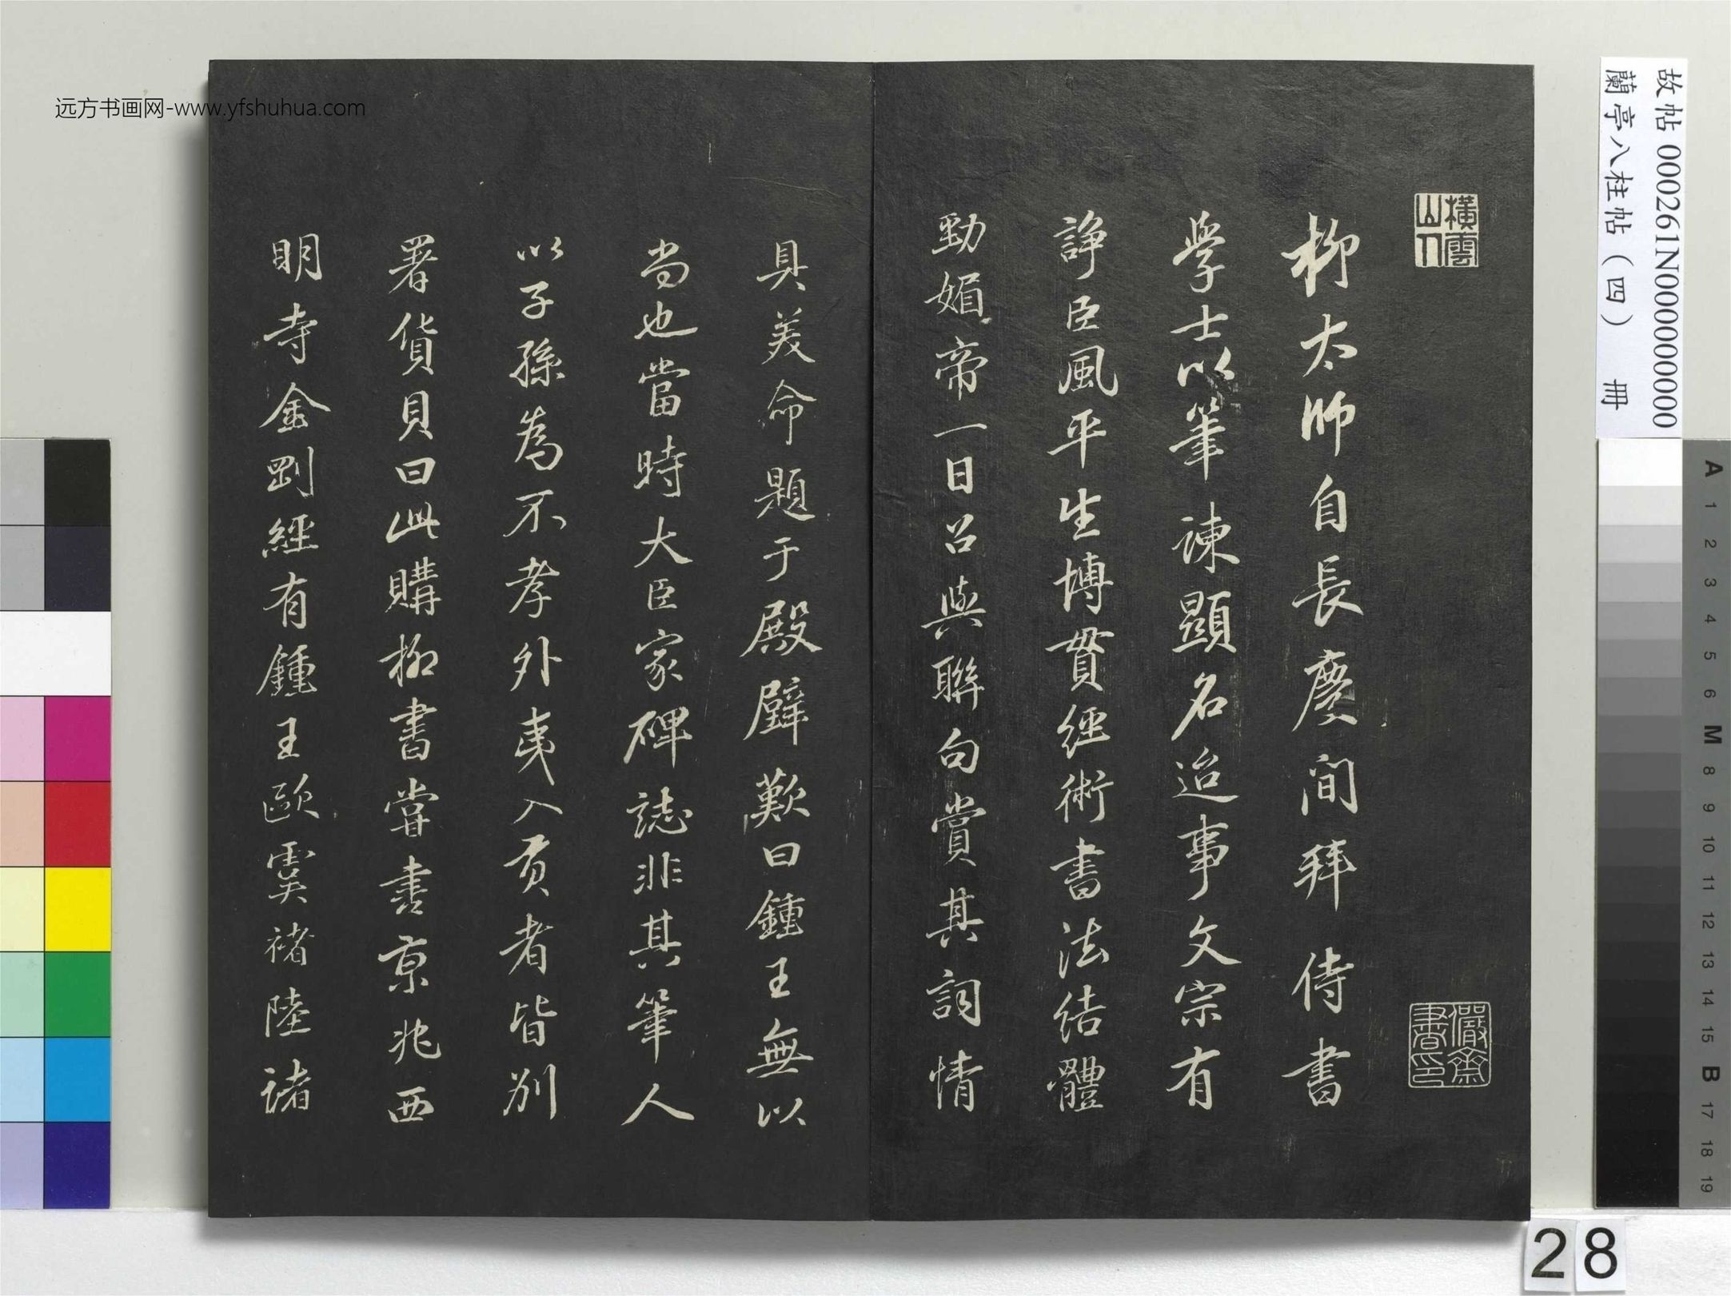 远方书画网-www.yfshuhua.com
故帖 000261N000000000
蘭亭八柱帖（四） 冊
橫雲山人
柳太師自長慶間拜侍書
學士以筆諫顯名迨事文宗有
諍臣風平生博貫經術書法結體
勁媚帝一日召與聯句賞其詞情
儼齋書印
具美命題于殿壁歎曰鍾王無以
尚也當時大臣家碑誌非其筆人
以子孫為不孝外夷入貢者皆別
署貨貝曰此購柳書嘗書京兆西
明寺金剛經有鍾王歐虞褚陸諸
A 1 2 3 4 5 6 M 8 9 10 11 12 13 14 15 B 17 18 19
28